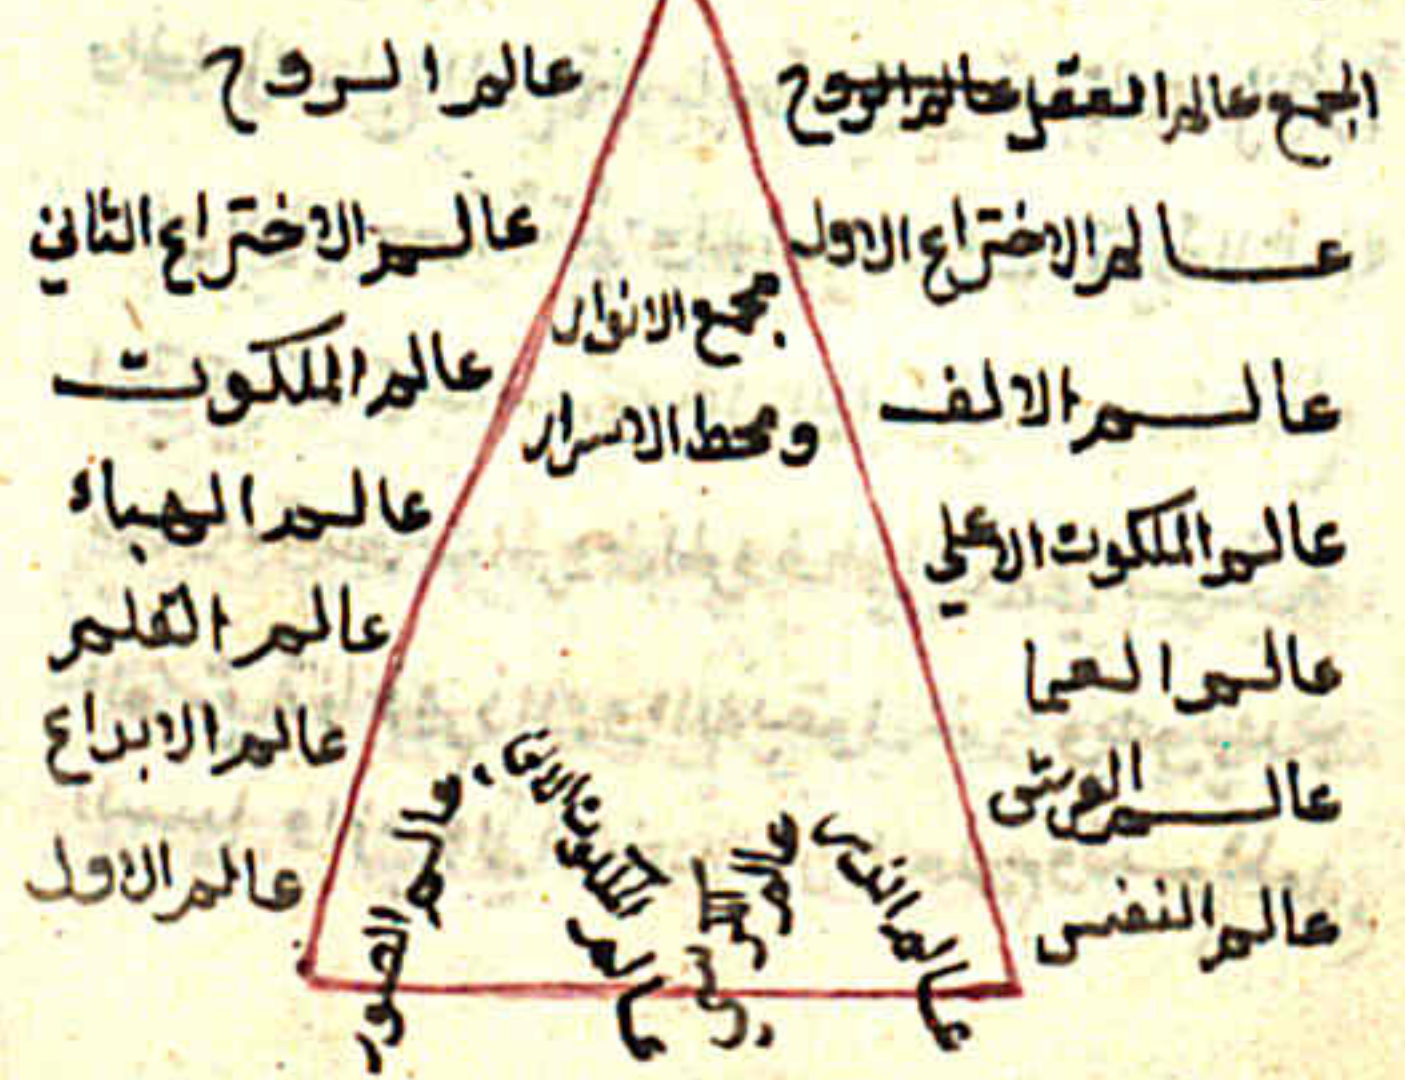 المجمع عالم العقل عالم الروح
عالم الاختراع الاول
عالم الالف
عالم الملكوت الاعلي
عالم العما
عالم العرش
عالم النفس
مجمع الانوار
ومحط الاسرار
عالم الروح
عالم الاختراع الثاني
عالم الملكوت
عالم الهباء
عالم القلم
عالم الابداع
عالم الاول
عالم
عالم الكرسي
عالم الملكوت
عالم الصور